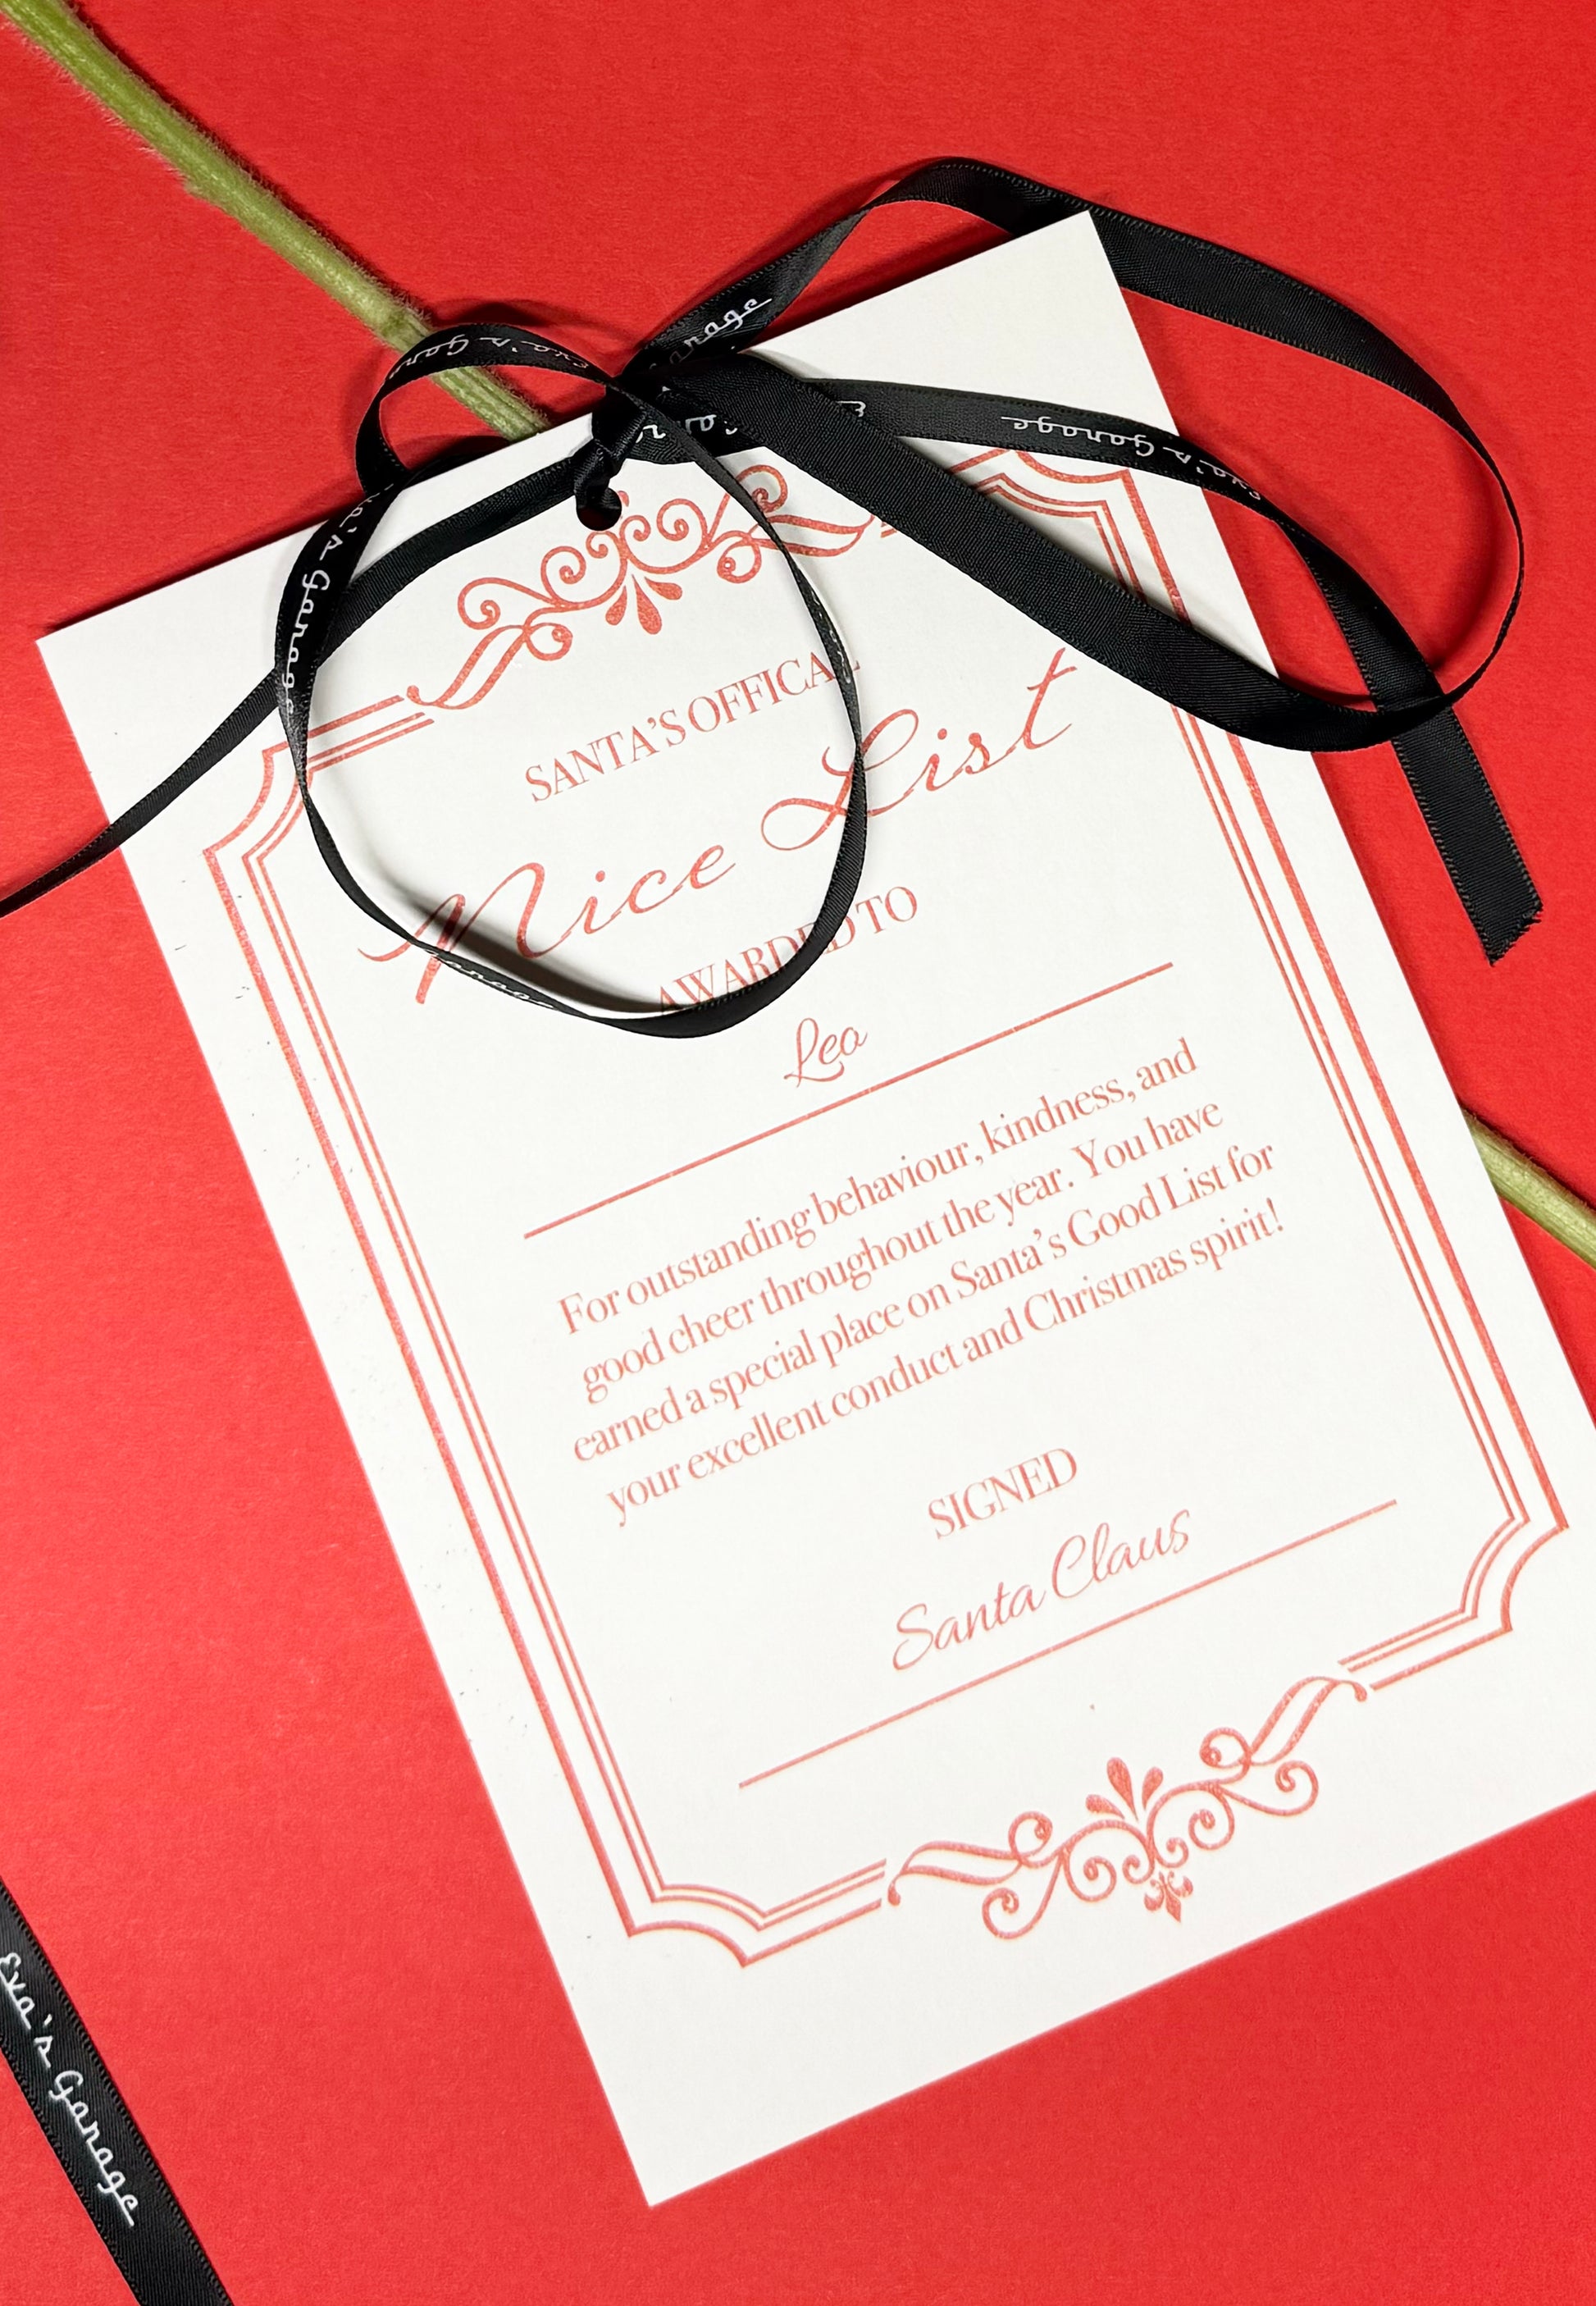 SANTA'S OFFICAL
Nice List
AWARDED TO
Leo
For outstanding behaviour, kindness, and
good cheer throughout the year. You have
earned a special place on Santa's Good List for
your excellent conduct and Christmas spirit!
SIGNED
Santa Claus
Eva's Garage
Eva's Garage
Eva's Garage
Eva's Garage